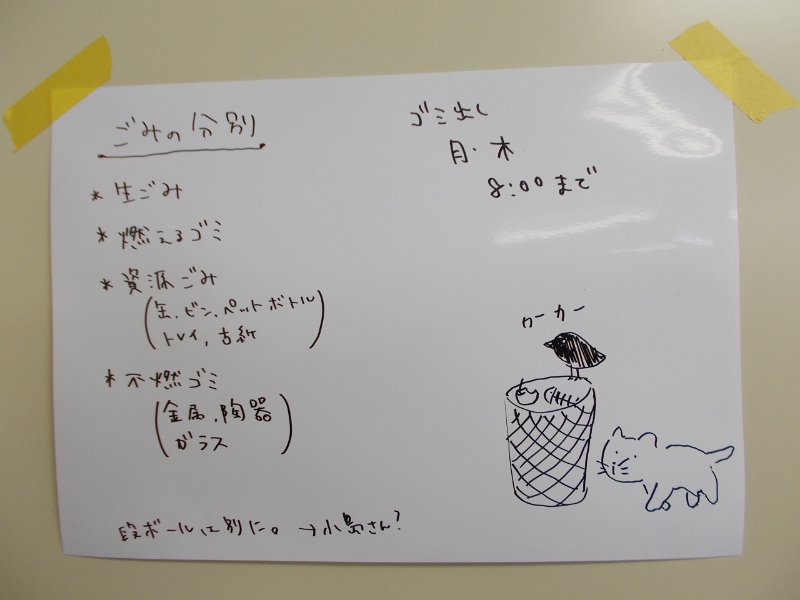 ごみの分別
* 生ごみ
* 燃えるゴミ
* 資源ごみ
(缶、ビン、ペットボトル
トレイ、古紙)
* 不燃ゴミ
(金属、陶器
ガラス)
段ボールは別に。 →小島さん?
ゴミ出し
月・木
8:00まで
カーカー